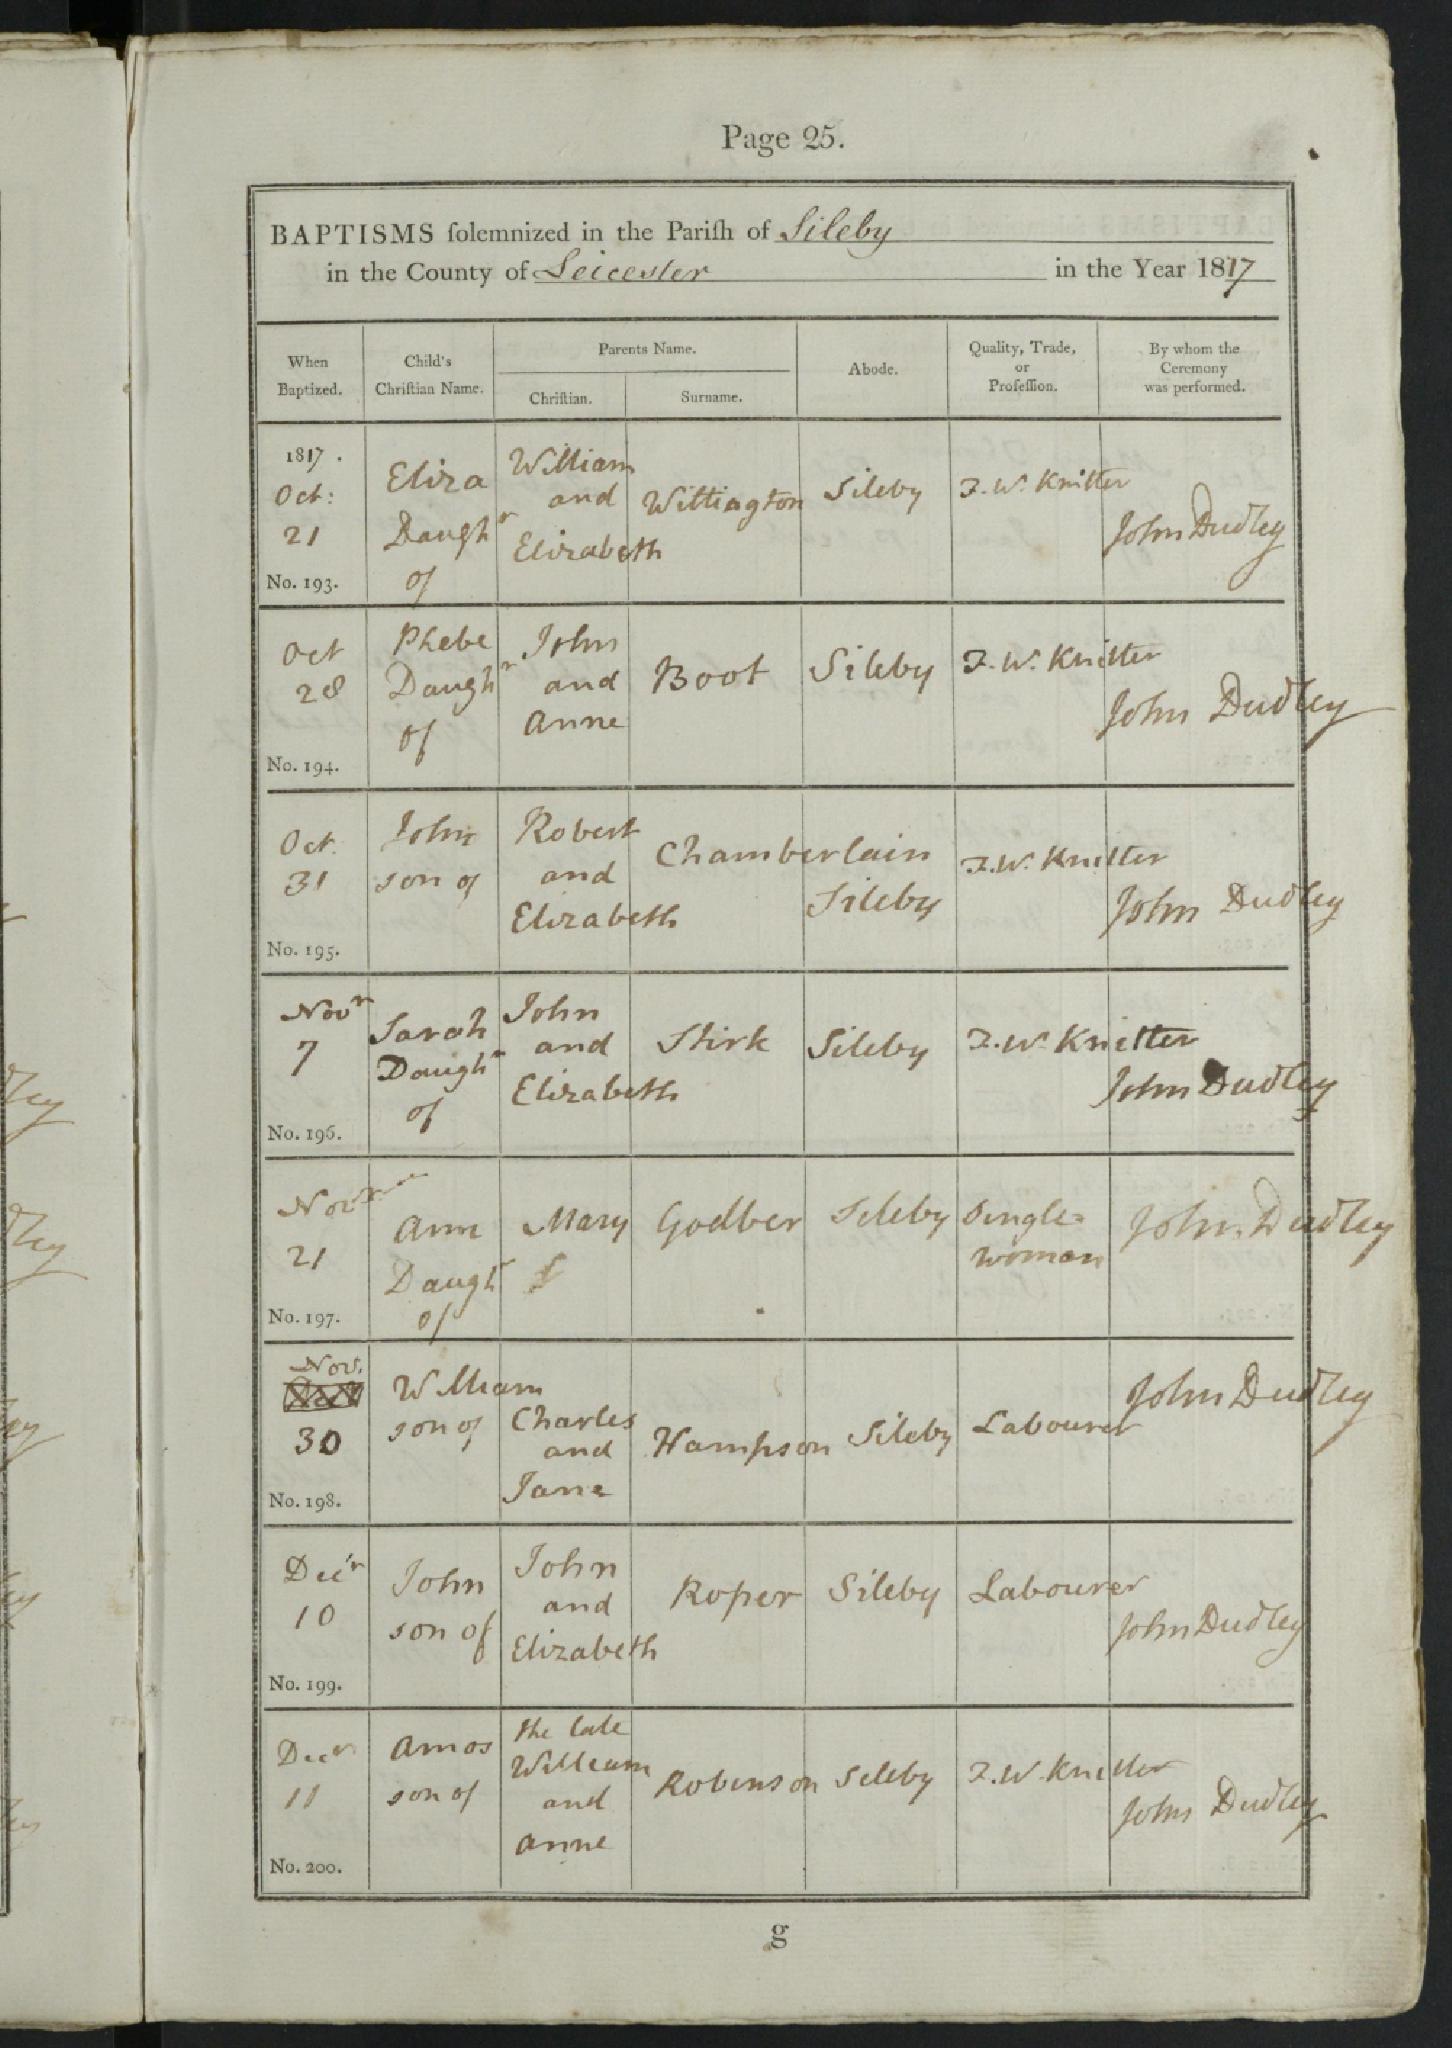 Page 25.
BAPTISMS ſolemnized in the Pariſh of Sileby
in the County of Leicester in the Year 1817
When Baptized.
Child's Chriſtian Name.
Parents Name.
Chriſtian.
Surname.
Abode.
Quality, Trade, or Profeſſion.
By whom the Ceremony was performed.
1817.
Oct:
21
No. 193.
Eliza
Daughr
of
William
and
Elizabeth
Wittington
Sileby
F.W. Knitter
John Dudley
Oct
28
No. 194.
Phebe
Daughr
of
John
and
Anne
Boot
Sileby
F.W. Knitter
John Dudley
Oct.
31
No. 195.
John
son of
Robert
and
Elizabeth
Chamberlain
Sileby
F.W. Knitter
John Dudley
Novr
7
No. 196.
Sarah
Daughr
of
John
and
Elizabeth
Stirk
Sileby
F.W. Knitter
John Dudley
Novr
21
No. 197.
Ann
Daughr
of
Mary
Godber
Sileby
Single
woman
John Dudley
Nov.
30
No. 198.
William
son of
Charles
and
Jane
Hampson
Sileby
Labourer
John Dudley
Decr
10
No. 199.
John
son of
John
and
Elizabeth
Roper
Sileby
Labourer
John Dudley
Decr
11
No. 200.
Amos
son of
the late
William
and
Anne
Robinson
Sileby
F.W. Knitter
John Dudley
g